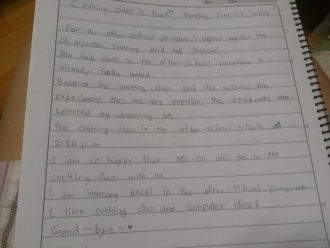 < Cooking class is fun! > Monday, June 21, Sunny
For the after-school program, I signed up for the
computer, cooking and ball classes
The ball class in the after-school program is
already fully
Because the cooking class and the science
experiment class are very popular, the students are
selected by drawing lots
The cooking class in the after-school starts at
2:50 p.m
I am so happy that will be in the
cooking class with me.
I am learning Excel in the after-school program
I like cooking class and computer class!
Good-bye~♥